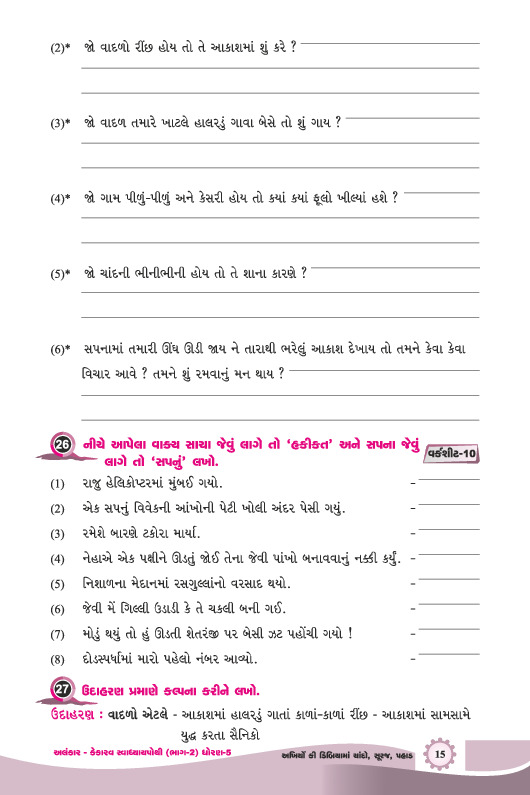 (2)* જો વાદળો રીંછ હોય તો તે આકાશમાં શું કરે ?
(3)* જો વાદળ તમારે ખાટલે હાલરડું ગાવા બેસે તો શું ગાય ?
(4)* જો ગામ પીળું-પીળું અને કેસરી હોય તો કયાં કયાં ફૂલો ખીલ્યાં હશે ?
(5)* જો ચાંદની ભીનીભીની હોય તો તે શાના કારણે ?
(6)* સપનામાં તમારી ઊંઘ ઊડી જાય ને તારાથી ભરેલું આકાશ દેખાય તો તમને કેવા કેવા
વિચાર આવે ? તમને શું રમવાનું મન થાય ?
26 નીચે આપેલા વાક્ય સાચા જેવું લાગે તો ‘હકીકત’ અને સપના જેવું
લાગે તો ‘સપનું’ લખો.
વર્કશીટ-10
(1) રાજુ હેલિકોપ્ટરમાં મુંબઈ ગયો. -
(2) એક સપનું વિવેકની આંખોની પેટી ખોલી અંદર પેસી ગયું. -
(3) રમેશે બારણે ટકોરા માર્યા. -
(4) નેહાએ એક પક્ષીને ઊડતું જોઈ તેના જેવી પાંખો બનાવવાનું નક્કી કર્યું. -
(5) નિશાળના મેદાનમાં રસગુલ્લાંનો વરસાદ થયો. -
(6) જેવી મેં ગિલ્લી ઉડાડી કે તે ચકલી બની ગઈ. -
(7) મોડું થયું તો હું ઊડતી શેતરંજી પર બેસી ઝટ પહોંચી ગયો ! -
(8) દોડસ્પર્ધામાં મારો પહેલો નંબર આવ્યો. -
27 ઉદાહરણ પ્રમાણે કલ્પના કરીને લખો.
ઉદાહરણ : વાદળો એટલે - આકાશમાં હાલરડું ગાતાં કાળાં-કાળાં રીંછ - આકાશમાં સામસામે
યુદ્ધ કરતા સૈનિકો
અલંકાર - કેકારવ સ્વાધ્યાયપોથી (ભાગ-2) ધોરણ-5
અખિયોં કી ડિબિયામાં ચાંદો, સૂરજ, પહાડ 15